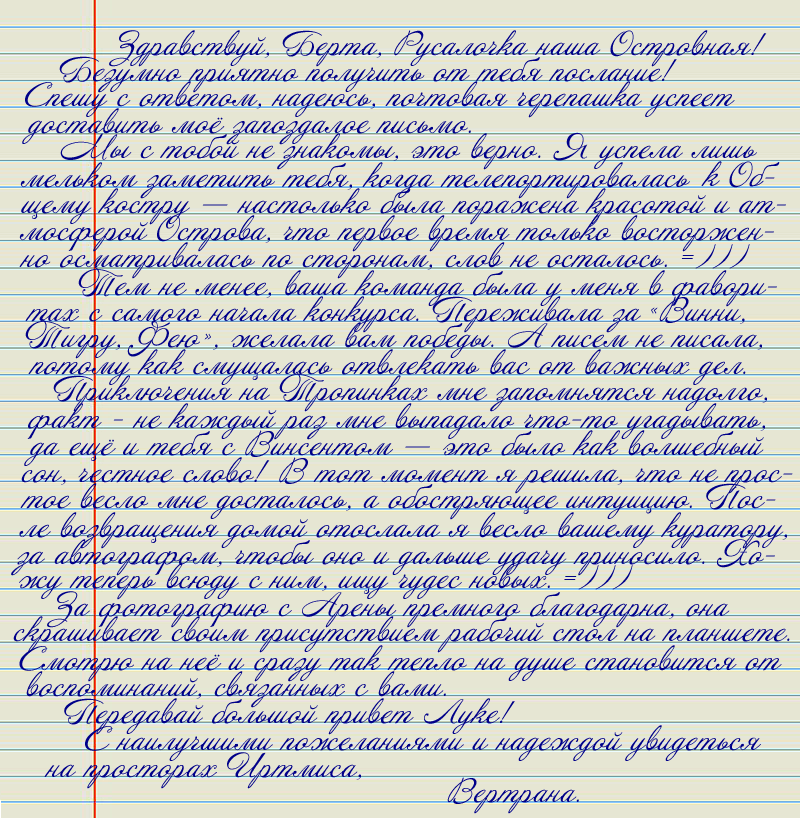 Здравствуй, Берта, Русалочка наша Островная!
Безумно приятно получить от тебя послание!
Спешу с ответом, надеюсь, почтовая черепашка успеет
доставить моё запоздалое письмо.
Мы с тобой не знакомы, это верно. Я успела лишь
мельком заметить тебя, когда телепортировалась к Об-
щему костру — настолько была поражена красотой и ат-
мосферой Острова, что первое время только восторжен-
но осматривалась по сторонам, слов не осталось. =)))
Тем не менее, ваша команда была у меня в фавори-
тах с самого начала конкурса. Переживала за «Винни,
Тигру, Фею», желала вам победы. А писем не писала,
потому как смущалась отвлекать вас от важных дел.
Приключения на Тропинках мне запомнятся надолго,
факт - не каждый раз мне выпадало что-то угадывать,
да ещё и тебя с Винсентом — это было как волшебный
сон, честное слово! В тот момент я решила, что не прос-
тое весло мне досталось, а обостряющее интуицию. Пос-
ле возвращения домой отослала я весло вашему куратору,
за автографом, чтобы оно и дальше удачу приносило. Хо-
жу теперь всюду с ним, ищу чудес новых. =)))
За фотографию с Арены премного благодарна, она
скрашивает своим присутствием рабочий стол на планшете.
Смотрю на неё и сразу так тепло на душе становится от
воспоминаний, связанных с вами.
Передавай большой привет Луке!
С наилучшими пожеланиями и надеждой увидеться
на просторах Иртмиса,
Вертрана.